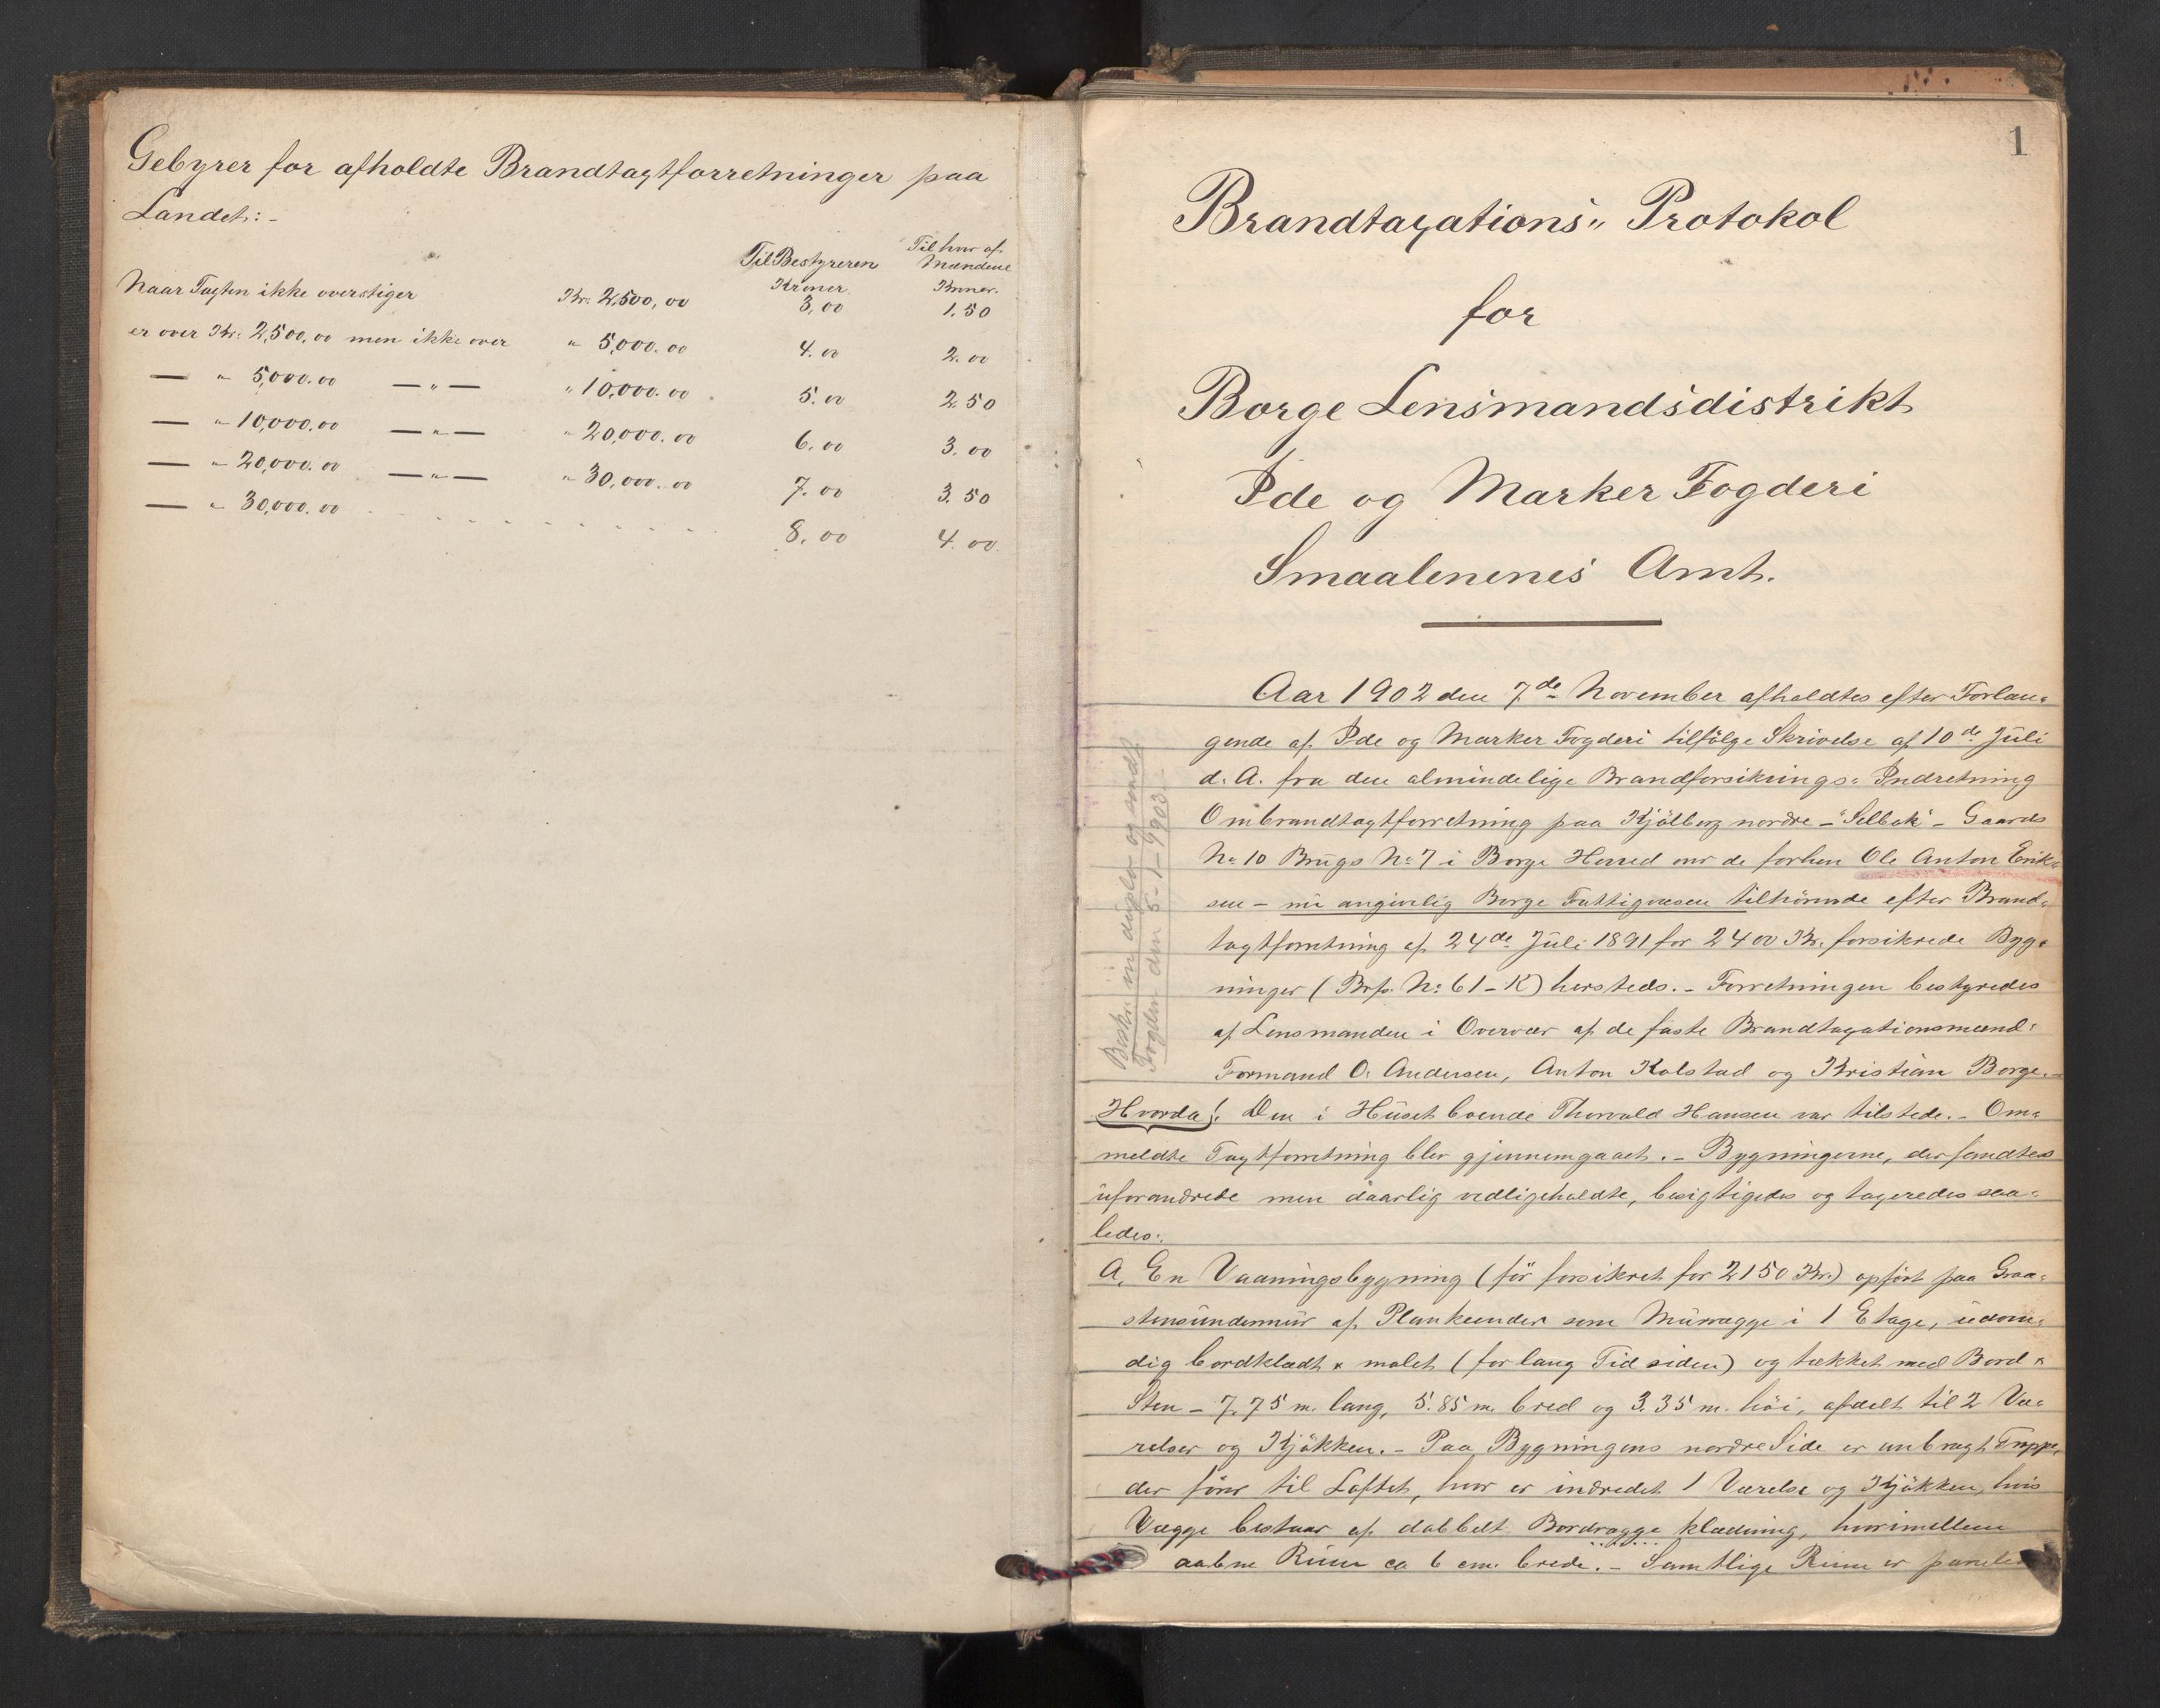 Gebyrer for afholdte Brandtaxtforretninger paa
Landet:-
Til Bestyreren
Til hver af
Mændene
Kroner.
Kroner.
Naar Taxten ikke overstiger Kr. 2,500,00 3,00 1.50
er over Kr. 2,500,00 men ikke over " 5,000.00 4.00 2.00
— " 5,000.00 — " — " 10,000.00 5.00 2.50
— " 10,000.00 — " — " 20,000.00 6.00 3.00
— " 20,000.00 — " — " 30,000.00 7.00 3.50
— " 30,000.00 . . . . . . . . . . 8.00 4.00
1
Brandtaxations" Protokol
for
Borge Lensmandsdistrikt
Ide og Marker Fogderi
Smaalenenes Amt.
Aar 1902 den 7de November afholdtes efter Forlan=
gende af Ide og Marker Fogderi tilfölge Skrivelse af 10de Juli
d. A. fra den almindelige Brandforsikrings= Indretning
Ombrandtaxtforretning paa Kjölberg nordre - "Selbak" - Gaards
No 10 Brugs No 7 i Borge Herred over de forhen Ole Anton Erik=
sen - nu angivelig Borge Fattigvæsen tilhörende efter Brand=
taxtforretning af 24de Juli 1891 for 2400 Kr. forsikrede Byg=
ninger (Brf. No 61-K) hersteds.- Forretningen bestyredes
af Lensmanden i Overvær af de faste Brandtaxationsmænd:
Formand O. Andersen, Anton Kolstad og Kristian Borge.-
Hvorda!: Den i Huset boende Thorvald Hansen var tilstede.- Om=
meldte Taxtforretning blev gjennemgaaet.- Bygningerne, der fandtes
uforandrede men daarlig vedligeholdte, besigtigedes og taxeredes saa=
ledes:.
A, En Vaaningsbygning (för forsikret for 2150 Kr.) opfört paa Graa=
stensundermur af Plankeender som Murvægge i 1 Etage, udven=
dig bordklædt & malet (for lang Tid siden) og tækket med Bord &
Sten - 7.75 m. lang, 5.85 m. bred og 3.35 m. höi, afdelt til 2 Væ=
relser og Kjökken.- Paa Bygningens nordre Side er anbragt Trappe,
der förer til Loftet, hvor er indredet 1 Værelse og Kjökken, hvis
Vægge bestaar af dobbelt Bordvægge klædning, hvorimellem
aabne Rum ca 6 cm. brede.- Samtlige Rum er panele
Beskr. in duplo og sendt
Fogden den 5-1-1903.